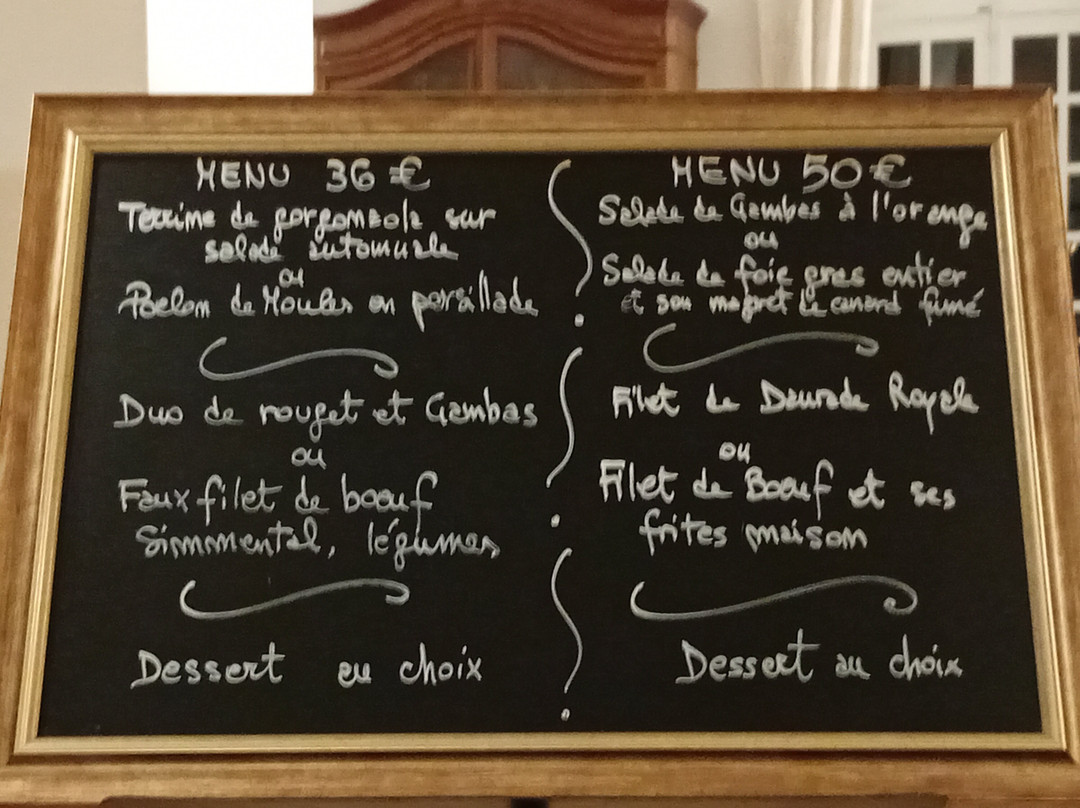 MENU 36 €
Terrine de gorgonzola sur
salade automnale
ou
Poelon de Moules en persillade
Duo de rouget et Gambas
ou
Faux filet de boeuf
Simmmental, légumes
Dessert au choix
MENU 50 €
Salade de Gambas à l'orange
ou
Salade de foie gras entier
et son magret de canard fumé
Filet de Daurade Royale
ou
Filet de Boeuf et ses
frites maison
Dessert au choix